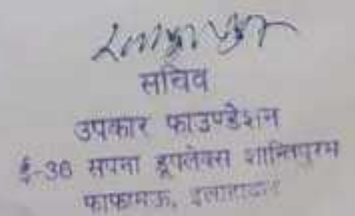 सचिव
उपकार फाउण्डेशन
ई-36 सपना डूपलेक्स शान्तिपुरम
फाफामऊ, इलाहाबाद